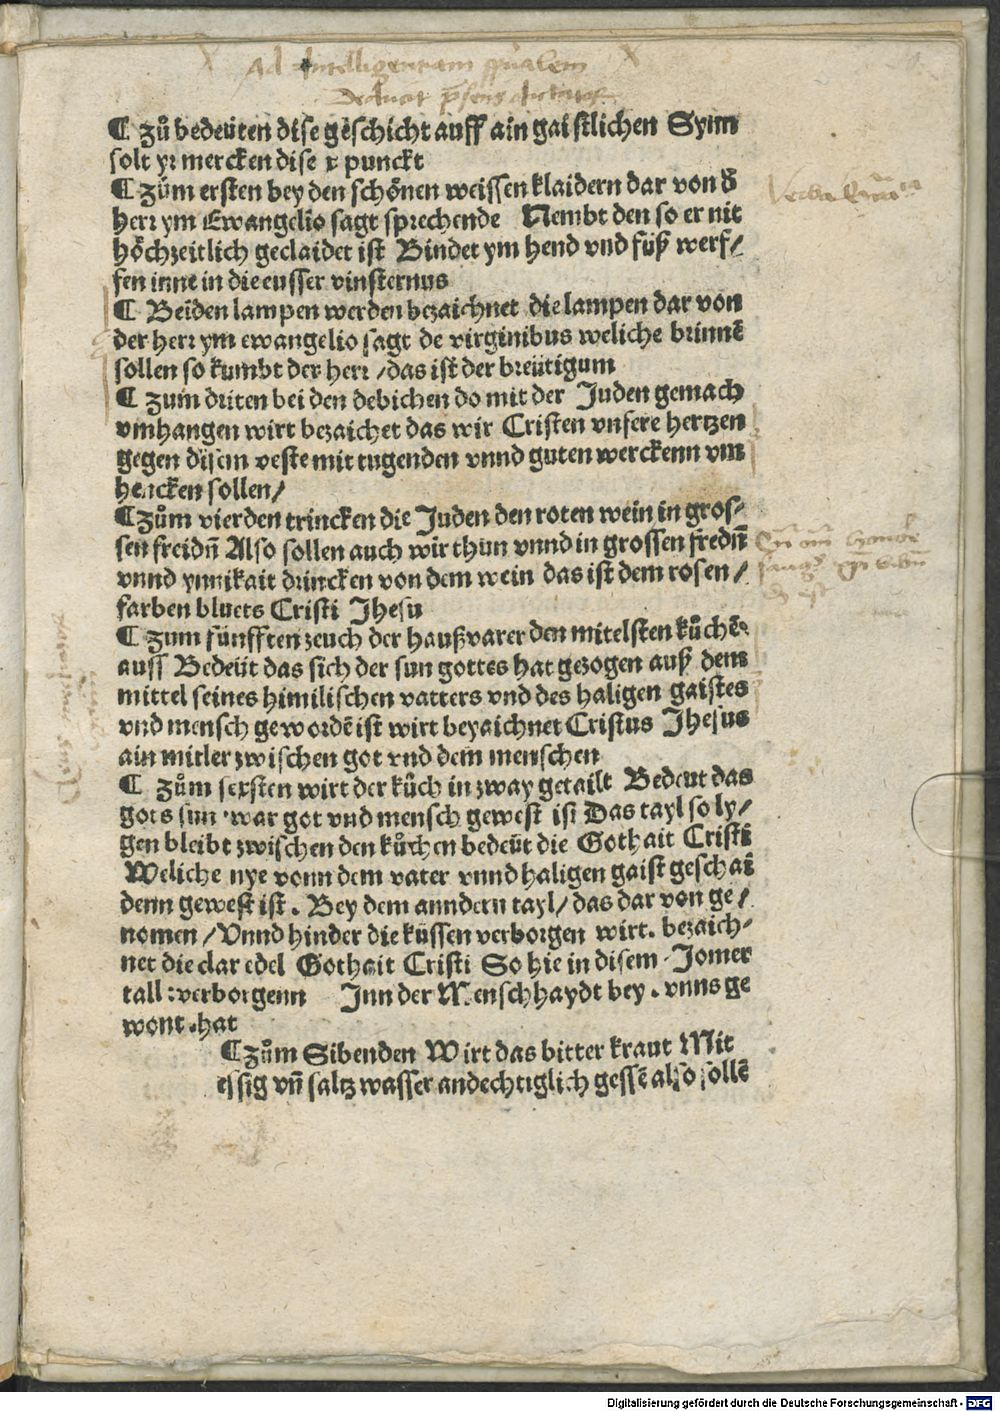 Ad Intelligentiam spũalem
¶ Zů bedeüten dise geschicht auff ain gaistlichen Synn
solt yr mercken dise x punckt
¶ Zům ersten bey den schönen weissen klaidern dar von d̃
herr ym Ewangelio sagt sprechende Nembt den so er nit
höchzeitlich geclaidet ist Bindet ym hend vnd füß werf/
fen inne in die eusser vinsternus
¶ Beiden lampen werden bezaichnet die lampen dar von
der herr ym ewangelio sagt de virginibus weliche brinnẽ
sollen so kumbt der herr / das ist der breütigum
¶ zum driten bei den debichen do mit der Juden gemach
vmhangen wirt bezaichet das wir Cristen vnsere hertzen
gegen disem veste mit tugenden vnnd guten werckenn vm
hencken sollen/
¶ Zům vierden trincken die Juden den roten wein in gros-
sen freidñ Also sollen auch wir thun vnnd in grossen fredñ
vnnd ynnikait drincken von dem wein das ist dem rosen/
farben bluets Cristi Jhesu
¶ zum fünfften zeuch der haußvarer den mitelsten kůchẽ
auss Bedeüt das sich der sun gottes hat gezogen auß dem
mittel seines himilischen vatters vnd des haligen gaistes
vnd mensch gewordẽ ist wirt beyaichnet Cristus Jhesus
ain mitler zwischen got vnd dem menschen
¶ Zům sexsten wirt der kůch in zway getailt Bedeut das
gots sun war got vnd mensch gewest ist Das tayl so ly/
gen bleibt zwischen den kůchen bedeüt die Gothait Cristi
Weliche nye vonn dem vater vnnd haligen gaist geschai
denn gewest ist. Bey dem anndern tayl/ das dar von ge/
nomen / Vnnd hinder die küssen verborgen wirt. bezaich-
net die clar edel Gothait Cristi So hie in disem Jomer
tall : verborgenn Jnn der Menschhaydt bey . vnns ge
wont . hat
¶ Zům Sibenden Wirt das bitter kraut Mit
essig vñ saltz wasser andechtiglich gessẽ also sollẽ
Digitalisierung gefördert durch die Deutsche Forschungsgemeinschaft - DFG